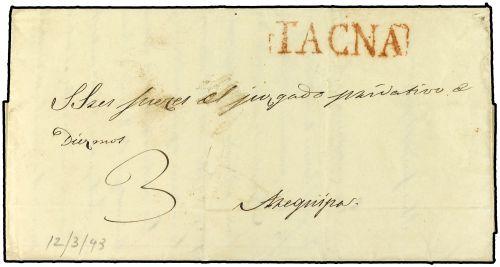 TACNA
SSres Jueces del juzgado privativo de
Diezmos
3
Arequipa.
12/3/43